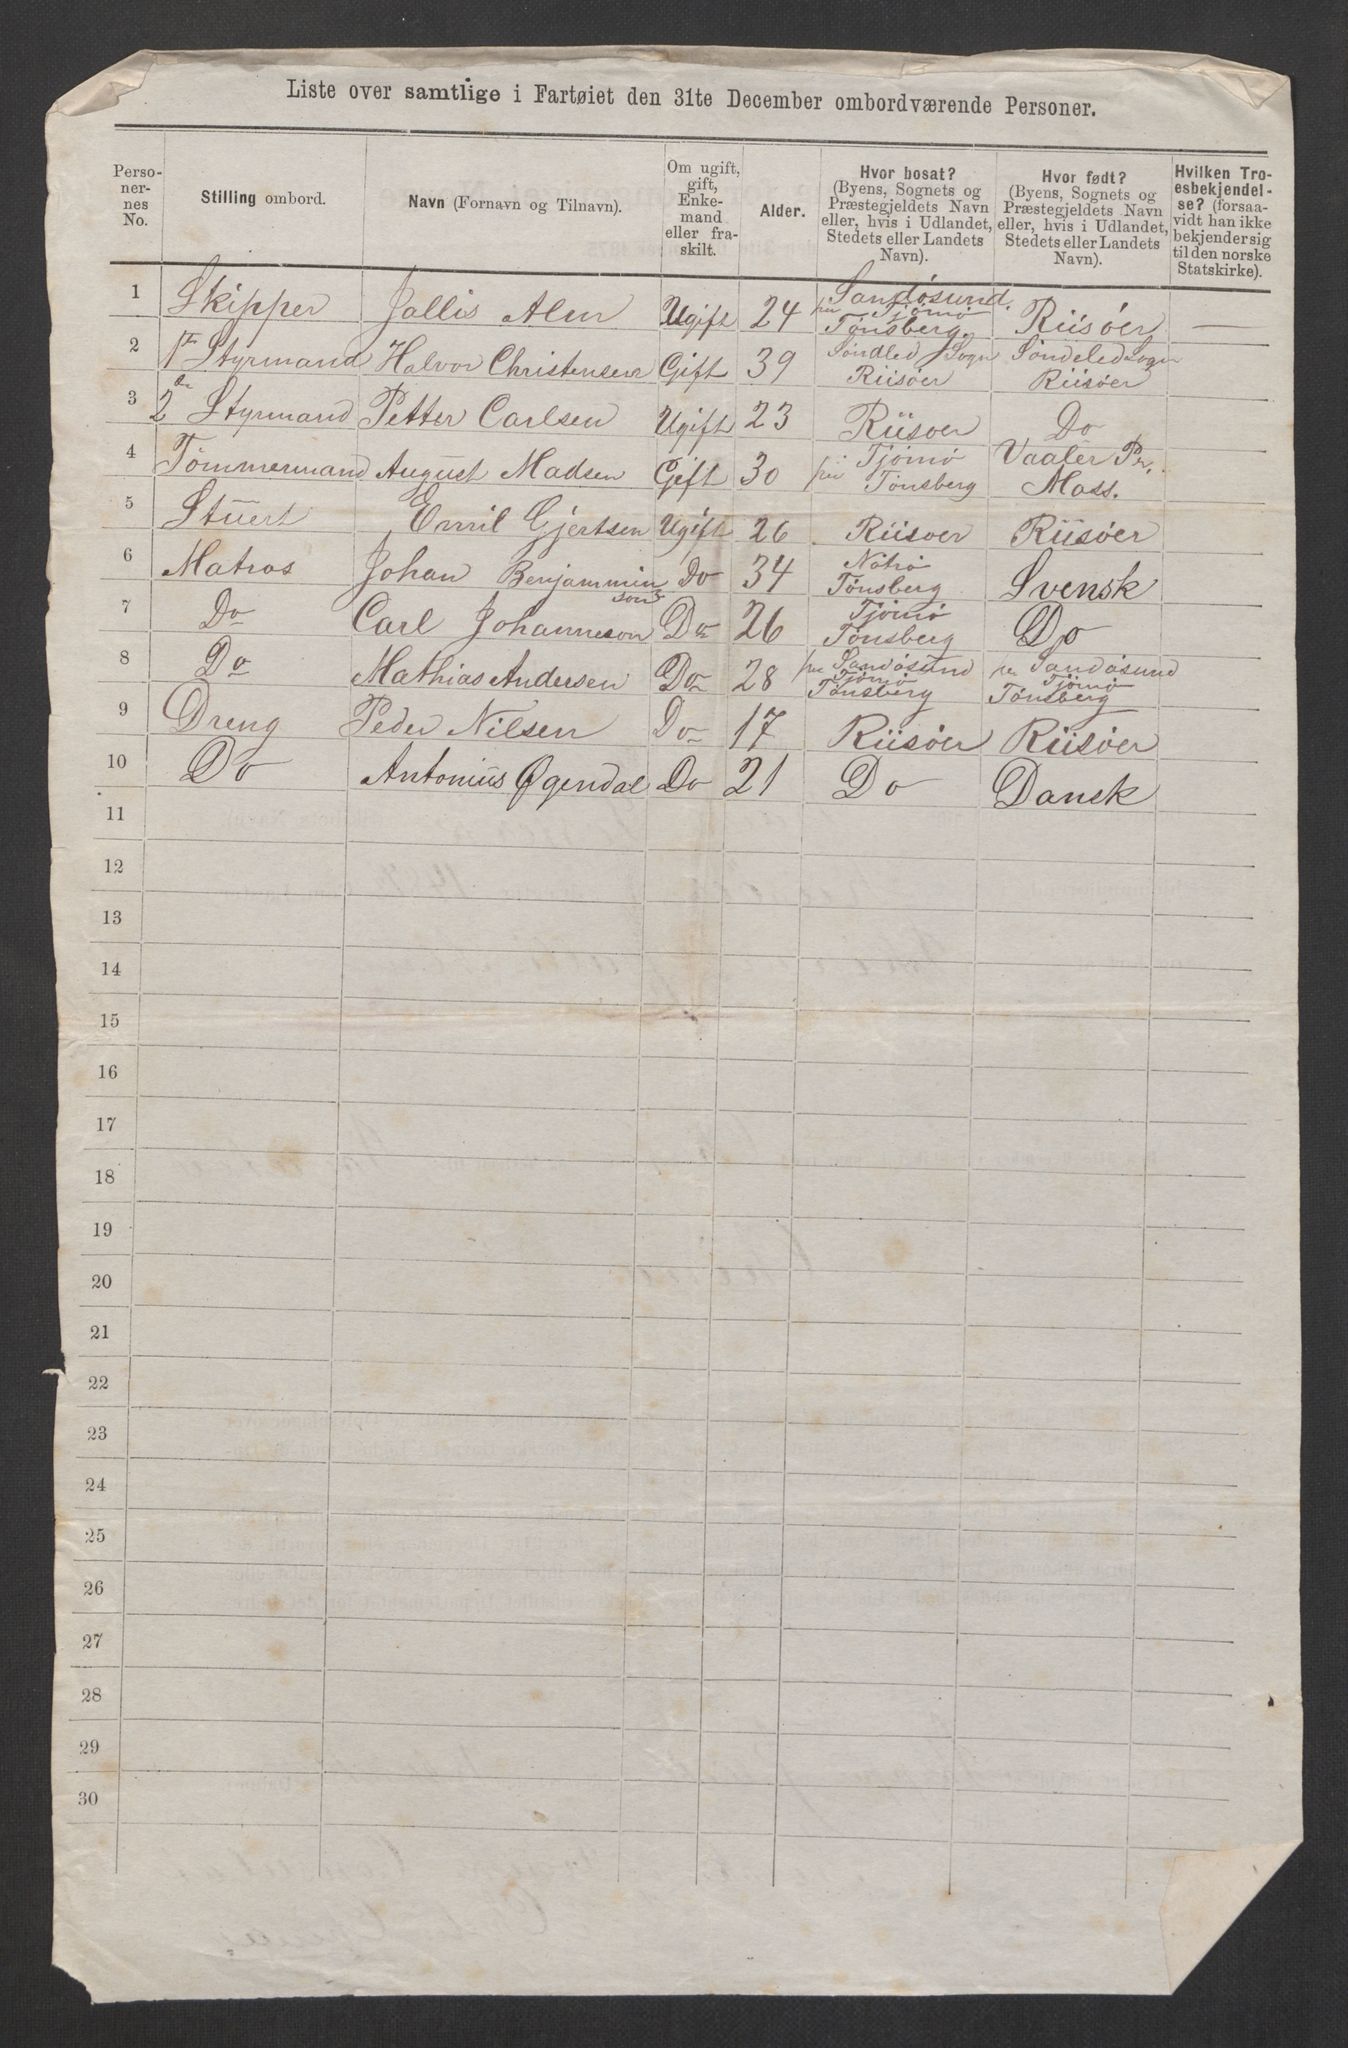 Liste over samtlige i Fartøiet den 31te December ombordværende Personer.
Personernes No. | Stilling ombord. | Navn (Fornavn og Tilnavn). | Om ugift, gift, Enkemand eller fraskilt. | Alder. | Hvor bosat? (Byens, Sognets og Præstegjeldets Navn eller, hvis i Udlandet, Stedets eller Landets Navn). | Hvor født? (Byens, Sognets og Præstegjeldets Navn eller, hvis i Udlandet, Stedets eller Landets Navn). | Hvilken Troesbekjendelse? (forsaavidt han ikke bekjender sig til den norske Statskirke).
1 | Skipper | Jallis Aln | Ugift | 24 | Sandøsund pr Tjømø Tønsberg. | Riisöer | —
2 | 1ste Styrmand | Halvor Christensen | Gift | 39 | Søndled Sogn Riisöer | Söndeled Sogn Riisöer
3 | 2den Styrmand | Petter Carlsen | Ugift | 23 | Riisöer | Do
4 | Tömmermand | August Madsen | Gift | 30 | Tjömö pr Tønsberg | Vaaler Pr. Moss.
5 | Stüert | Emil Gjertsen | Ugift | 26 | Riisöer | Riisöer
6 | Matros | Johan Benjamminson | Do | 34 | Nøtrø Tønsberg | Svensk
7 | Do | Carl Johanneson | Do | 26 | Tjömø Tønsberg | Do
8 | Do | Mathias Andersen | Do | 28 | pr Sandøsund Tjömø Tønsberg | pr Sandøsund Tjömø Tønsberg
9 | Dreng | Peder Nilsen | Do | 17 | Riisøer | Riisøer
10 | Do | Antonius Øgendal | Do | 21 | Do | Dansk
11
12
13
14
15
16
17
18
19
20
21
22
23
24
25
26
27
28
29
30